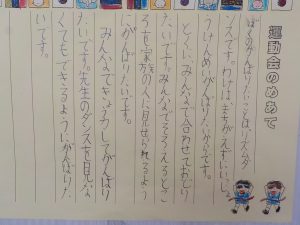 運動会のめあて
ぼくのがんばりたいことは、リズムダ
ンスです。わけは、まちがえずにいっし
ょうけんめいがんばりたいからです。
とくに、みんなで合わせておどり
たいです。みんなでそろえるとこ
ろを家族の人に見せられるよう
にがんばりたいです。
みんなできょう力してがんばり
たいです。先生のダンスを見な
くてもできるようにがんばりた
いです。